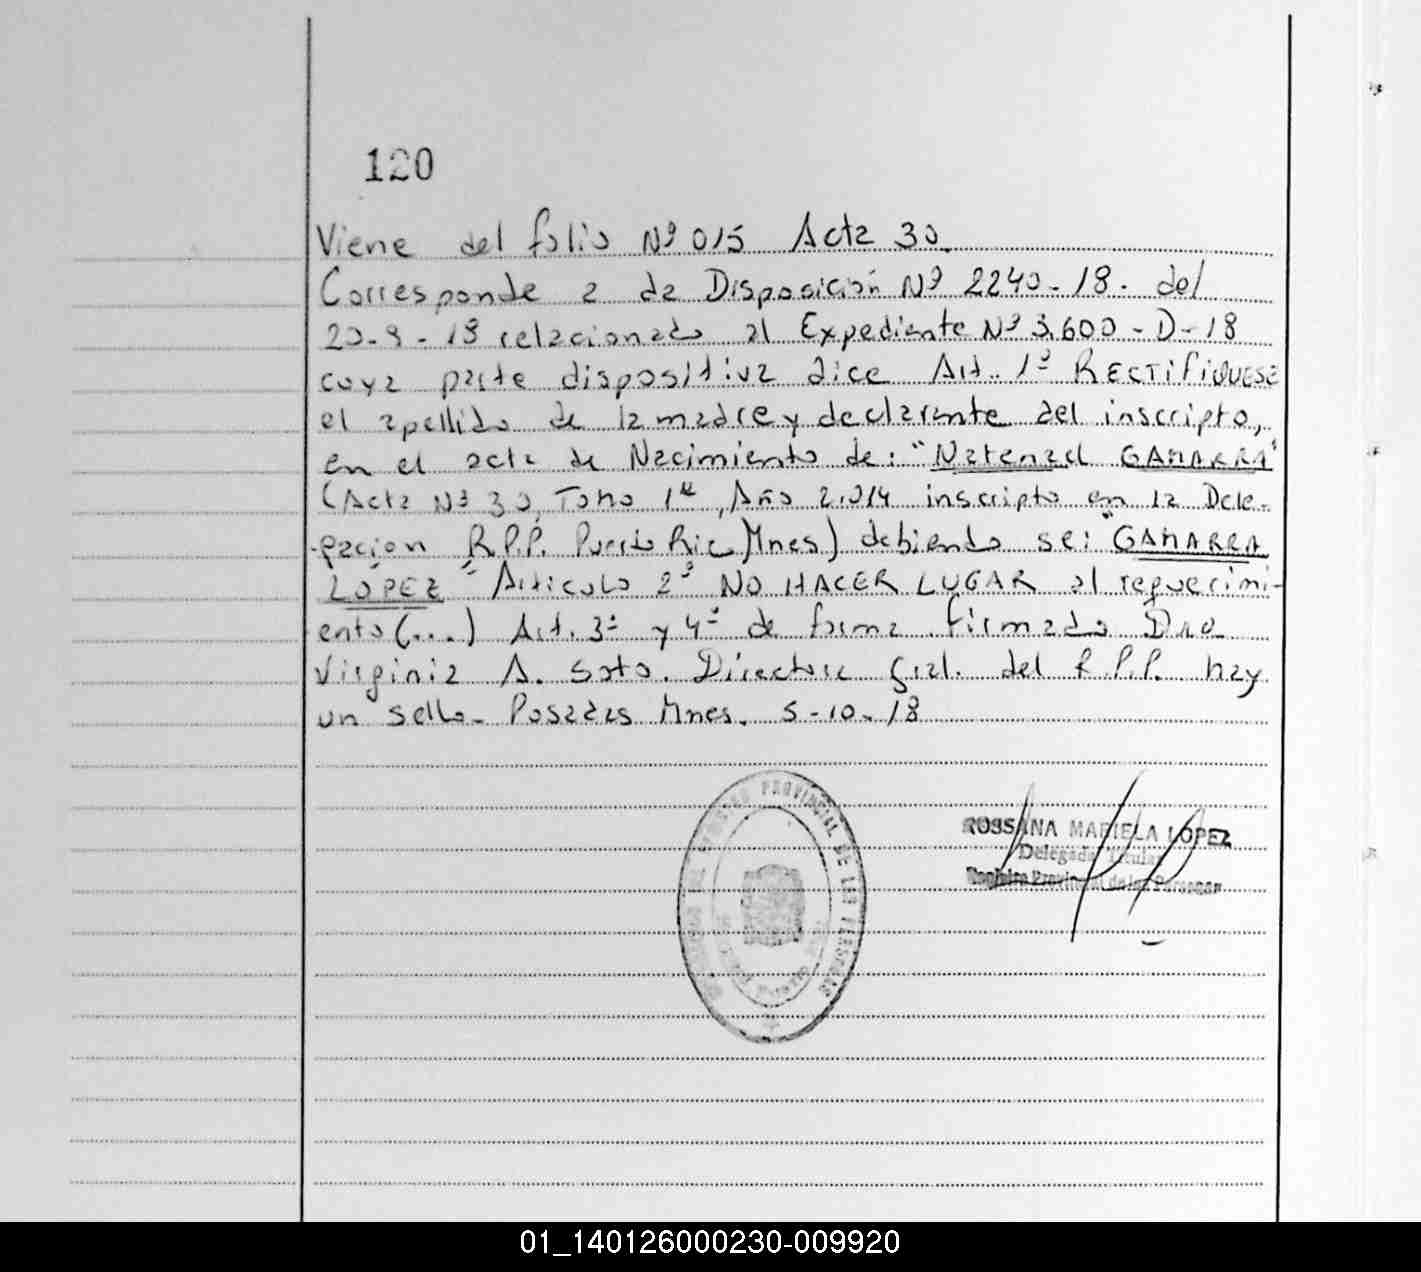 120
Viene del folio Nº 015 Acta 30.
Corresponde a da Disposición Nº 2240-18. del
20-9-18 relacionado al Expediente Nº 3.600-D-18
cuya parte dispositiva dice Art. 1º RECTIFIQUESE
el apellido de la madre y declarante del inscripto,
en el acta de Nacimiento de: "Natenael GAMARRA"
(Acta Nº 30, Tomo 1º, Año 2.014 inscripto en la Dele-
gacion R.P.P. Puerto Rico Mnes) debiendo se: "GAMARRA
LÓPEZ" Articulo 2º NO HACER LUGAR al requerimi-
ento (...) Art. 3º y 4º de forma. Firmado Dra
Virginia A. Soto. Directora Gral. del R.P.P. hay
un sello. Posadas Mnes. 5-10-18
PROVINCIAL DE LAS PERSONAS
ROSSANA MARIELA LOPEZ
Delegada Titular
Registro Provincial de las Personas
01_140126000230-009920